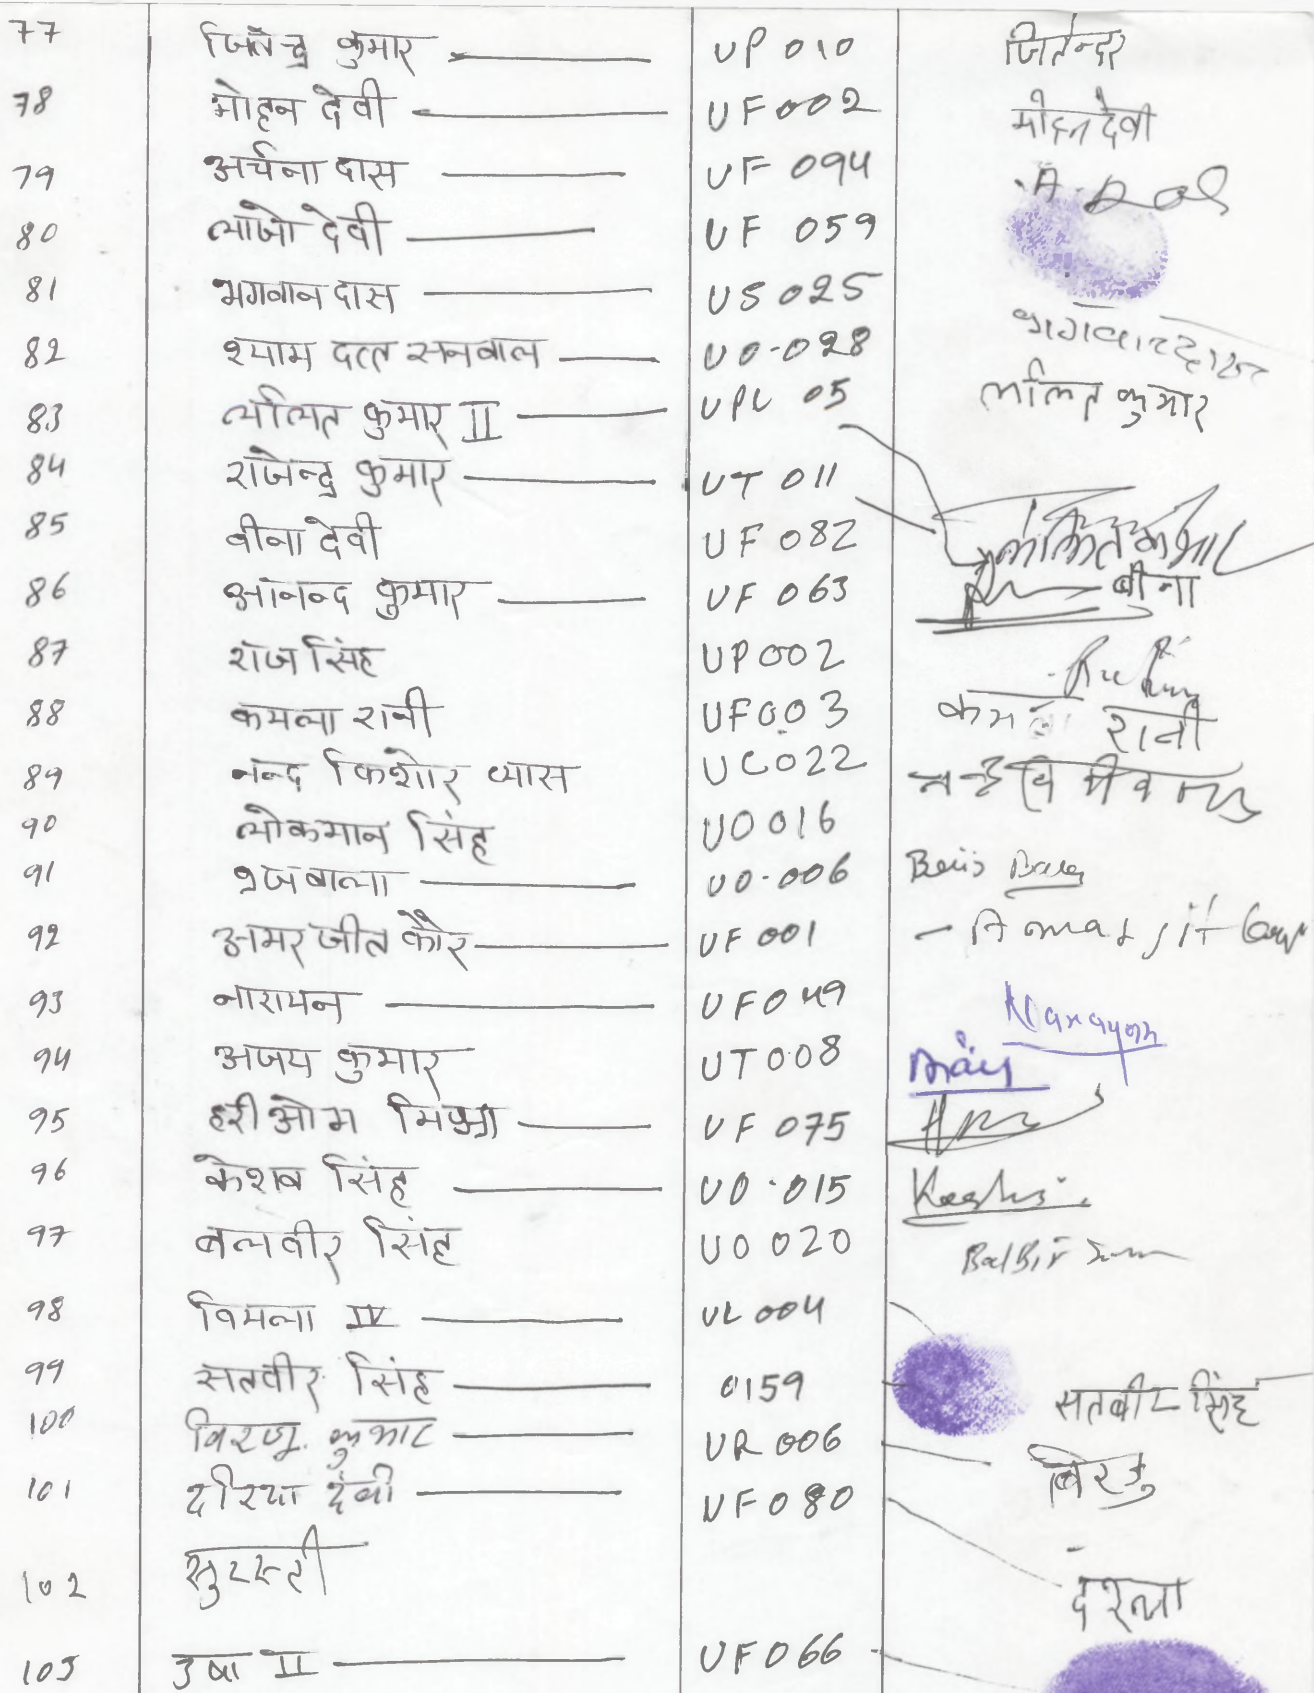 77 जितेन्द्र कुमार UP 010 जितेन्दर
78 मोहन देवी UF 002 मोहन देवी
79 अर्चना दास UF 094 A. Das
80 लाजो देवी UF 059
81 भगवान दास US 025 भगवानदास
82 श्याम दत्त सनवाल UO-028
83 ललित कुमार II UPL 05 ललित कुमार
84 राजेन्द्र कुमार UT 011
85 वीना देवी UF 082 बीना
86 आनन्द कुमार UF 063
87 राज सिंह UP 002
88 कमला रानी UF 003 कमला रानी
89 नन्द किशोर व्यास UC 022
90 लोकमान सिंह UO 016
91 ब्रजबाला UO-006
92 अमरजीत कौर UF 001 Amarjit
93 नारायन UF 049 Narayan
94 अजय कुमार UT 008
95 हरीओम मिश्रा UF 075
96 केशव सिंह UO-015
97 बलवीर सिंह UO 020 BalBir
98 विमला IV UL 004
99 सतवीर सिंह 0159 सतबीर सिंह
100 विरजू कुमार UR 006 बिरजु
101 देवी UF 080
102 सुरस्ती
103 उषा II UF 066